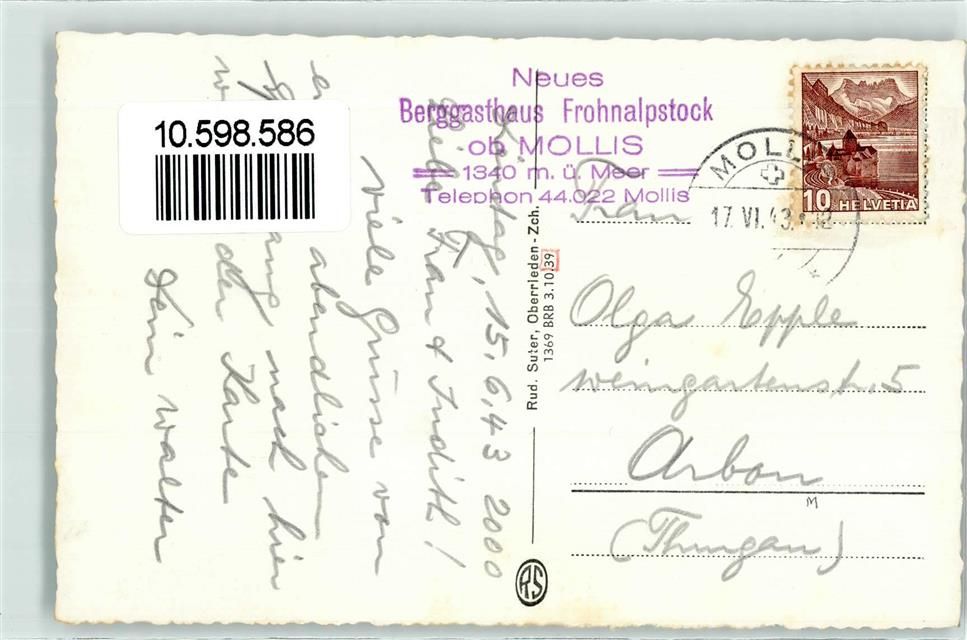 10.598.586
Neues
Berggasthaus Frohnalpstock
ob MOLLIS
1340 m. ü. Meer
Telephon 44.022 Mollis
MOLLIS
17. VI. 43.
10 HELVETIA
Rud. Suter, Oberrieden-Zch.
1369 BRB 3.10.39
Frau
Olga Epple
Weingartenstr. 5
Arbon
(Thurgau)
M
RS
15.6.43 2000
Liebe Frau & Judith!
Viele Grüsse von
abendlichen
nach hier
der Karte
Dein Walter